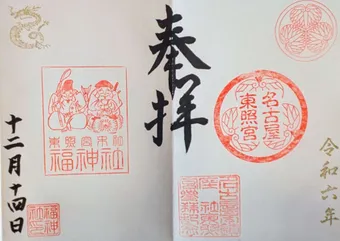 令和六年
名古屋
東照宮
奉拝
東照宮末社
福神社
十二月十四日